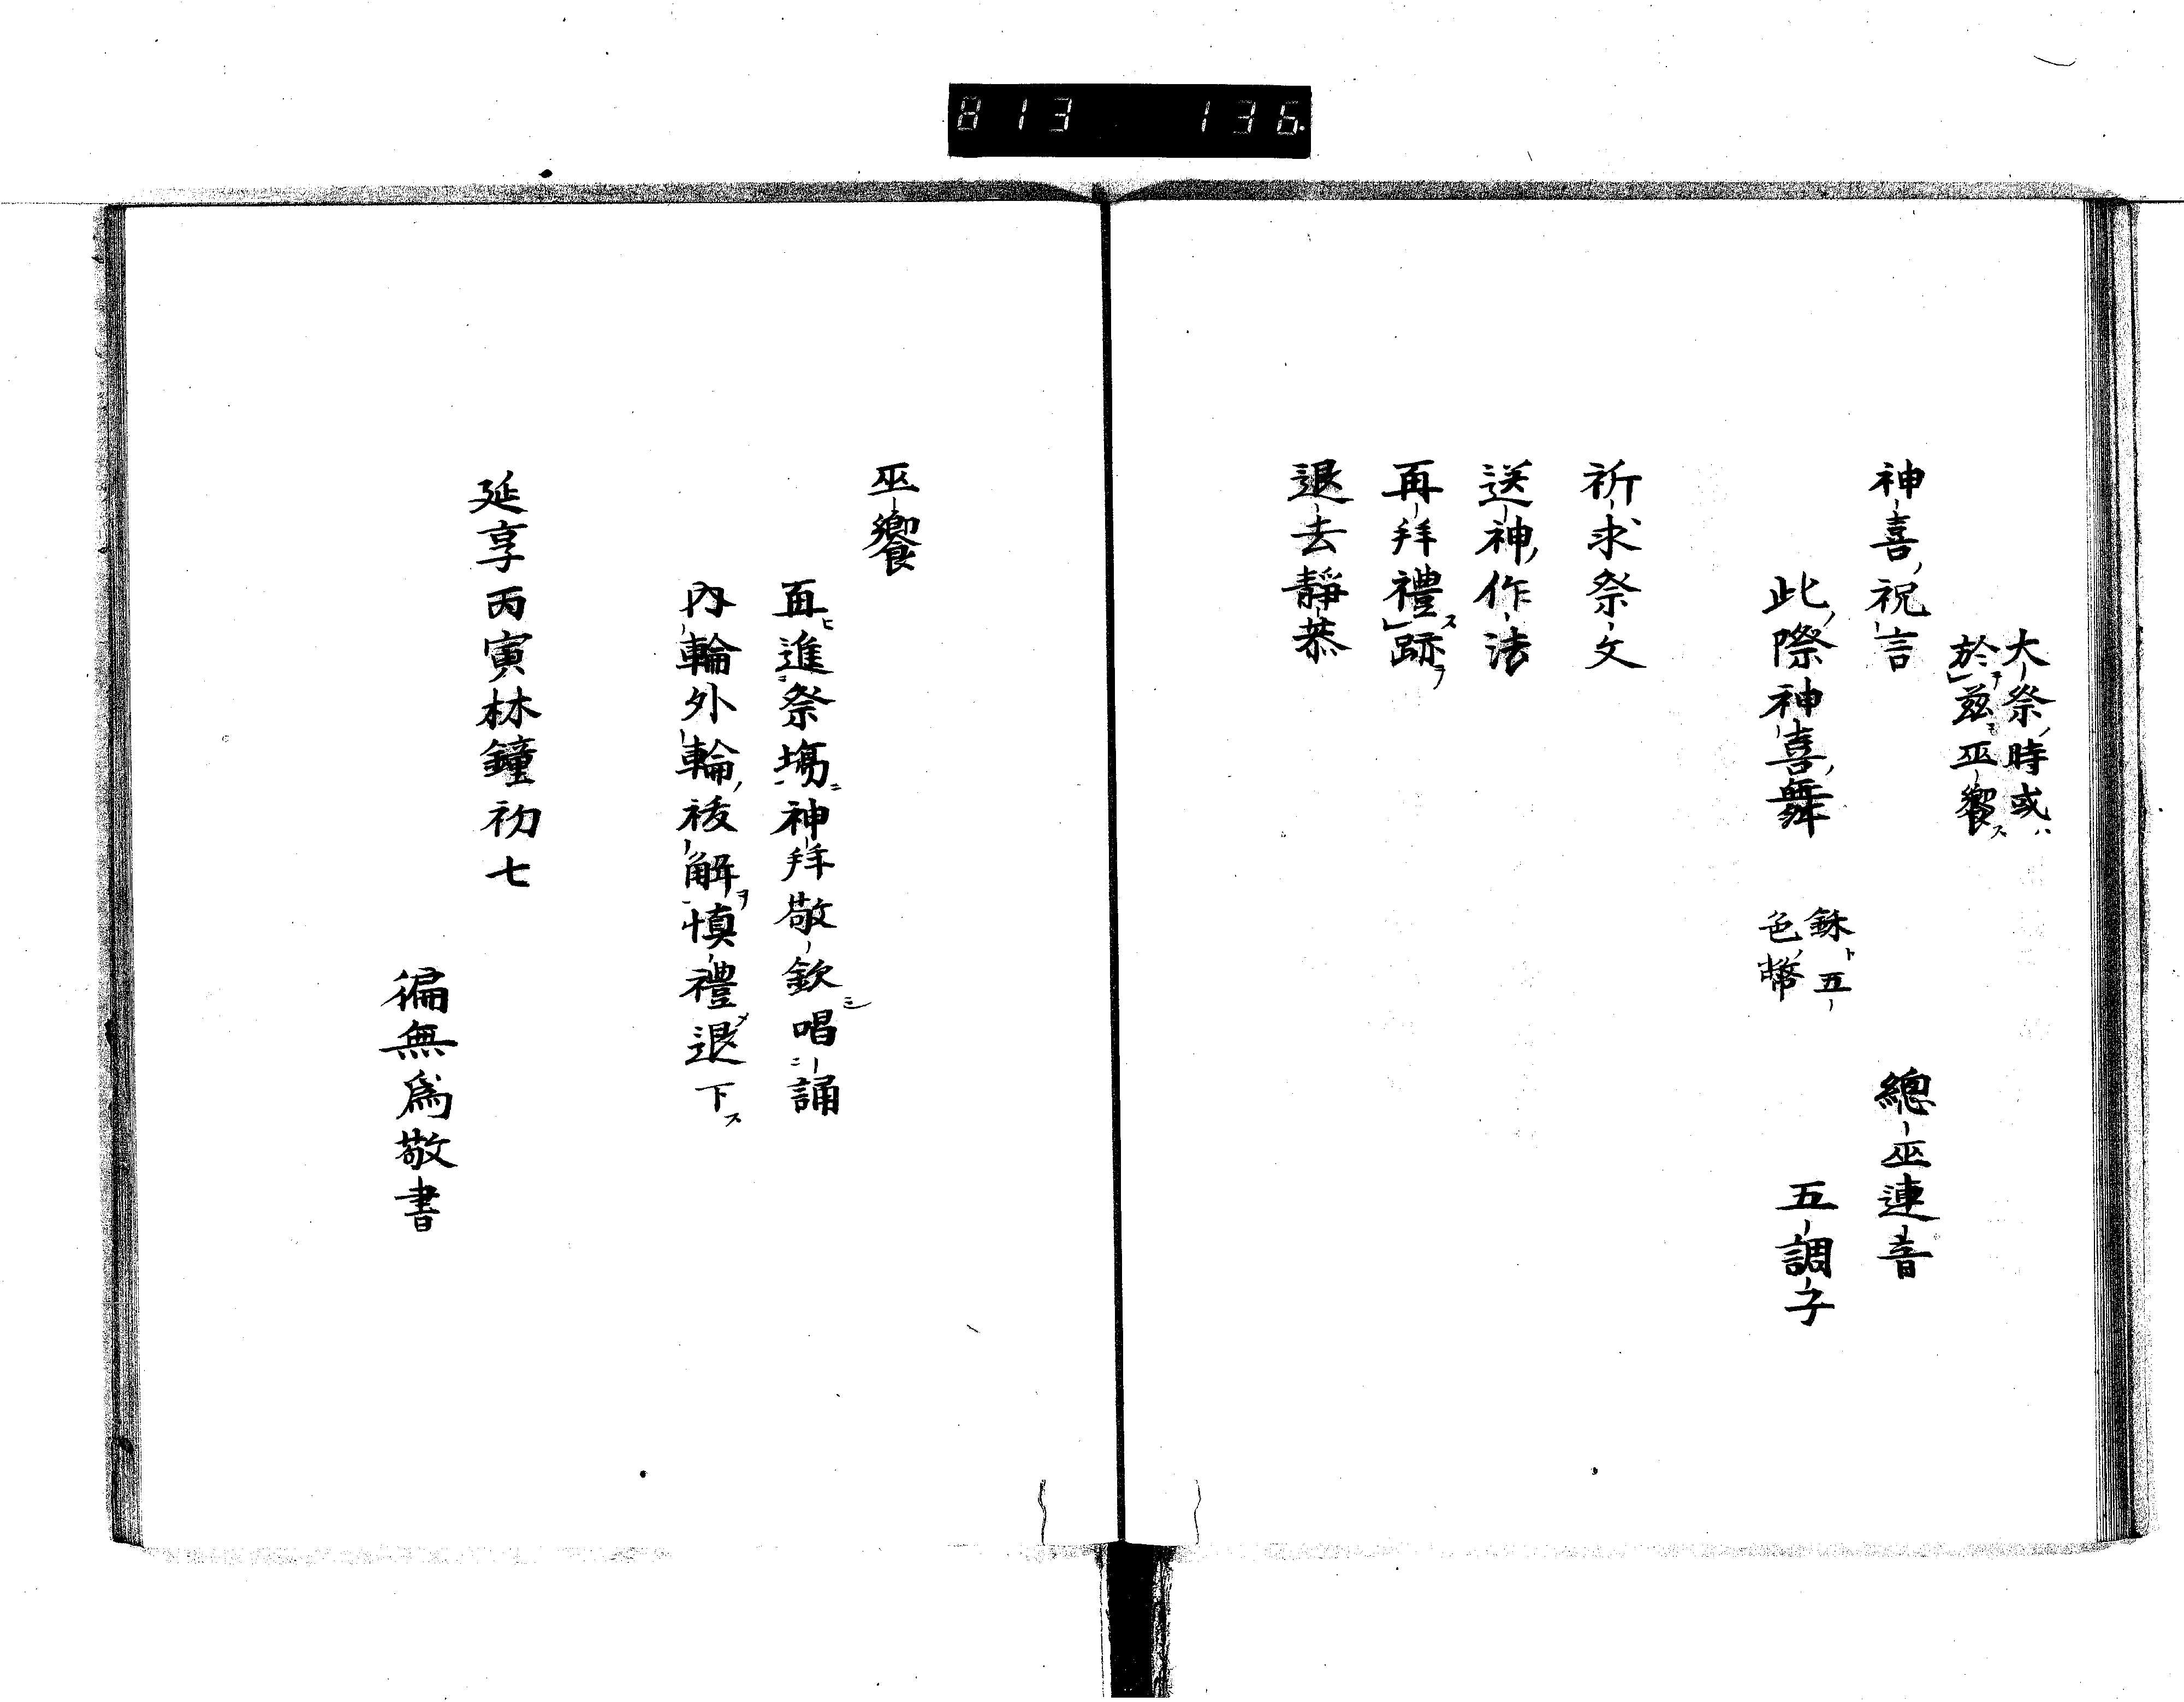 813 136
大祭ノ時或ハ
於テ茲ニ巫饗ス
神喜ノ祝言 總巫連音
此ノ際神喜ノ舞 鉢ト五色ノ幣 五調子
祈求祭文
送神ノ作法
再拜禮ス跡ヲ
退去靜恭
巫饗
再ヒ進ミ祭塲ニ神拜敬欽ミ唱誦
内輪外輪ノ後解ヲ慎禮メ退下ス
延享丙寅林鐘初七
徧無爲敬書